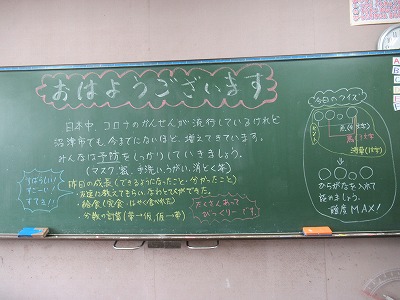 おはようございます
日本中、コロナのかんせんが流行しているけれど
沼津市でも今までにないほど、増えてきています。
みんなは予防をしっかりしていきましょう。
(マスク、窓、手洗い、うがい、消どく等)
昨日の成長(できるようになったこと・分かったこと)
・友達に教えてもらい、なわとびができた。
・給食(完食・はやく食べれた)
・分数の計算(帯→仮、仮→帯)
すばらしい!
すごーい!
すてき!!
たくさんあって
びっくりーです。
今日のクイズ
ヒント
○○○○
からがなを入れて
読めましょう。
難度MAX!